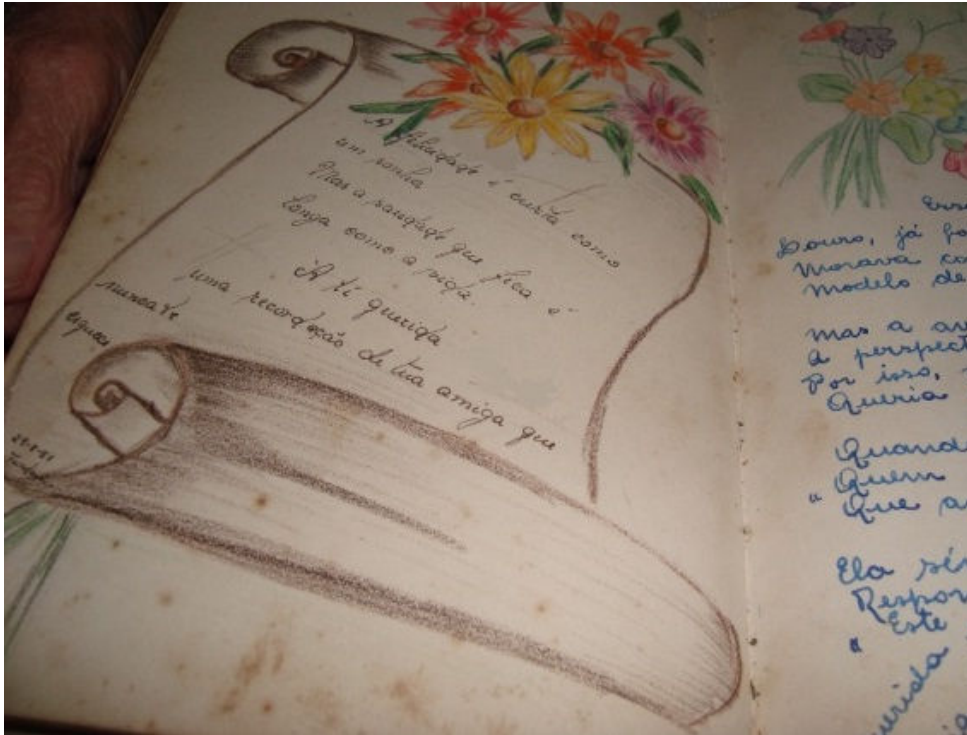 A felicidade é curta como
um sonho
Mas a saudade que fica é
longa como a vida.
A ti querida
uma recordação de tua amiga que
nunca te
esquece
Louro, já
Morava
modelo de
mas a
a
Por isso,
Queria
Quand
" Quem
Que a
Ela
Respon
" Este